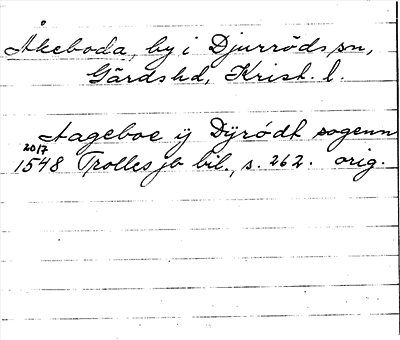 Åkeboda, by i Djurröds sn,
Gärds hd, Krist. l.
Aageboe ij Dÿrødt sogenn
20/7
1548 Trolles jb bil., s. 262. orig.